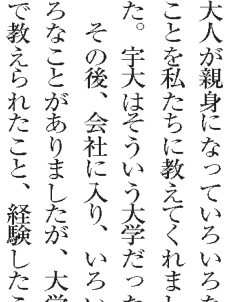 大人が親身になっていろいろな
ことを私たちに教えてくれまし
た。宇大はそういう大学だった
その後、会社に入り、いろい
ろなことがありましたが、大学
で教えられたこと、経験したこ